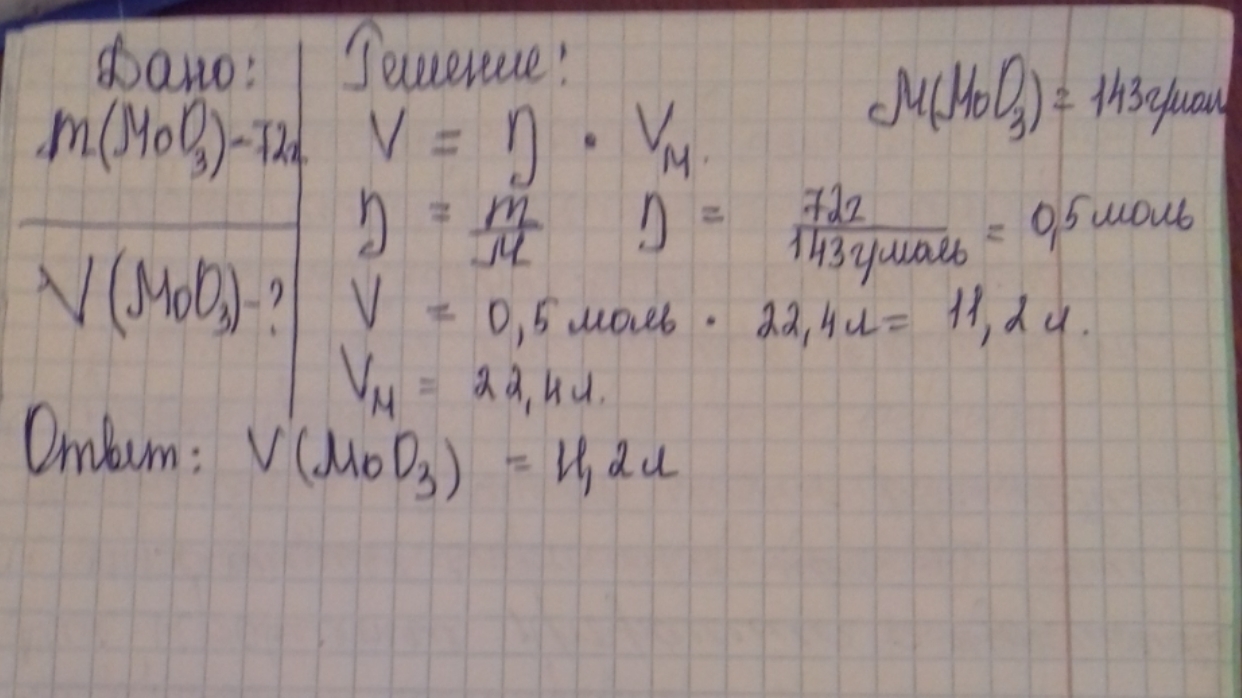 Дано:
m(MoO3)-72г.
V(MoO3)-?
Решение:
M(MoO3)= 143г/мол
V = n · VM.
n = m/M n = 72г/143г/моль = 0,5 моль
V = 0,5 моль · 22,4л= 11,2 л.
VM = 22,4л.
Ответ: V(MoO3) = 11,2л